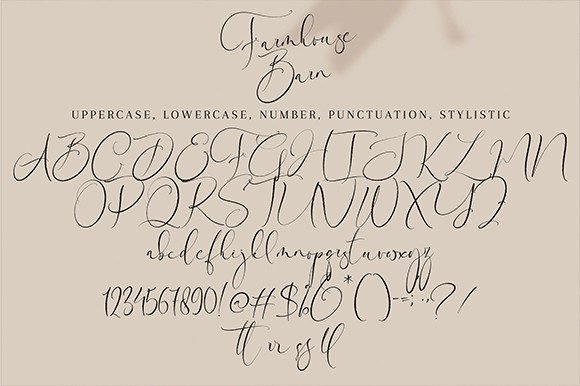 Farmhouse
Barn
UPPERCASE, LOWERCASE, NUMBER, PUNCTUATION, STYLISTIC
ABCDEFGHIJKLMN
OPQRSTUVWXYZ
abcdefghijklmnopqrstuvwxyz
1234567890!@#$%&*()-=;:,?/
tt rr ss ll